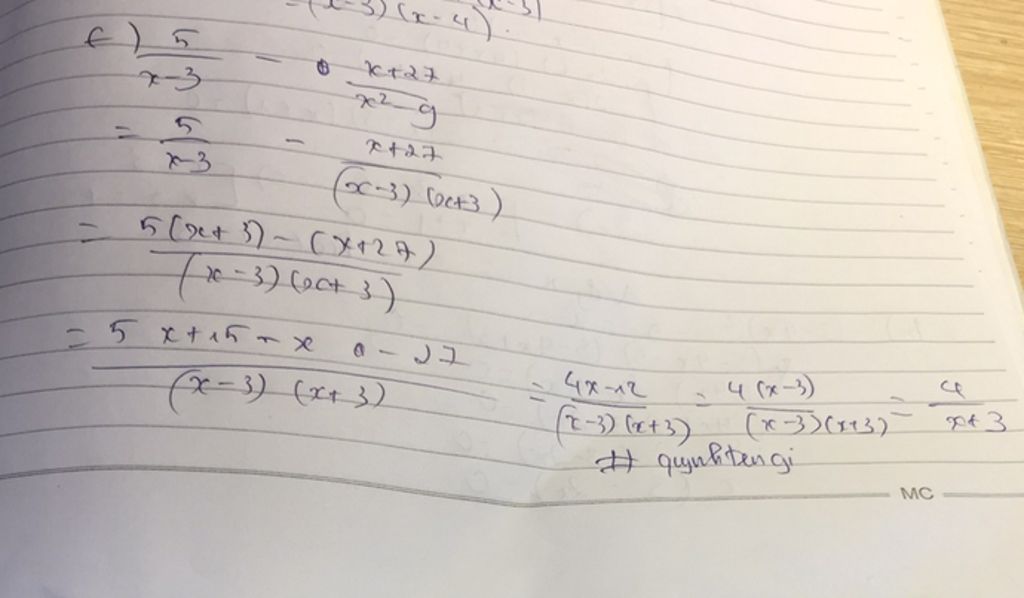 = (x-3)(x-4).
c) 5/(x-3) - (x+27)/(x²-9)
= 5/(x-3) - (x+27)/((x-3)(x+3))
= (5(x+3) - (x+27))/((x-3)(x+3))
= (5x+15-x-27)/((x-3)(x+3)) = (4x-12)/((x-3)(x+3)) = 4(x-3)/((x-3)(x+3)) = 4/(x+3)
# quynhtengi
MC